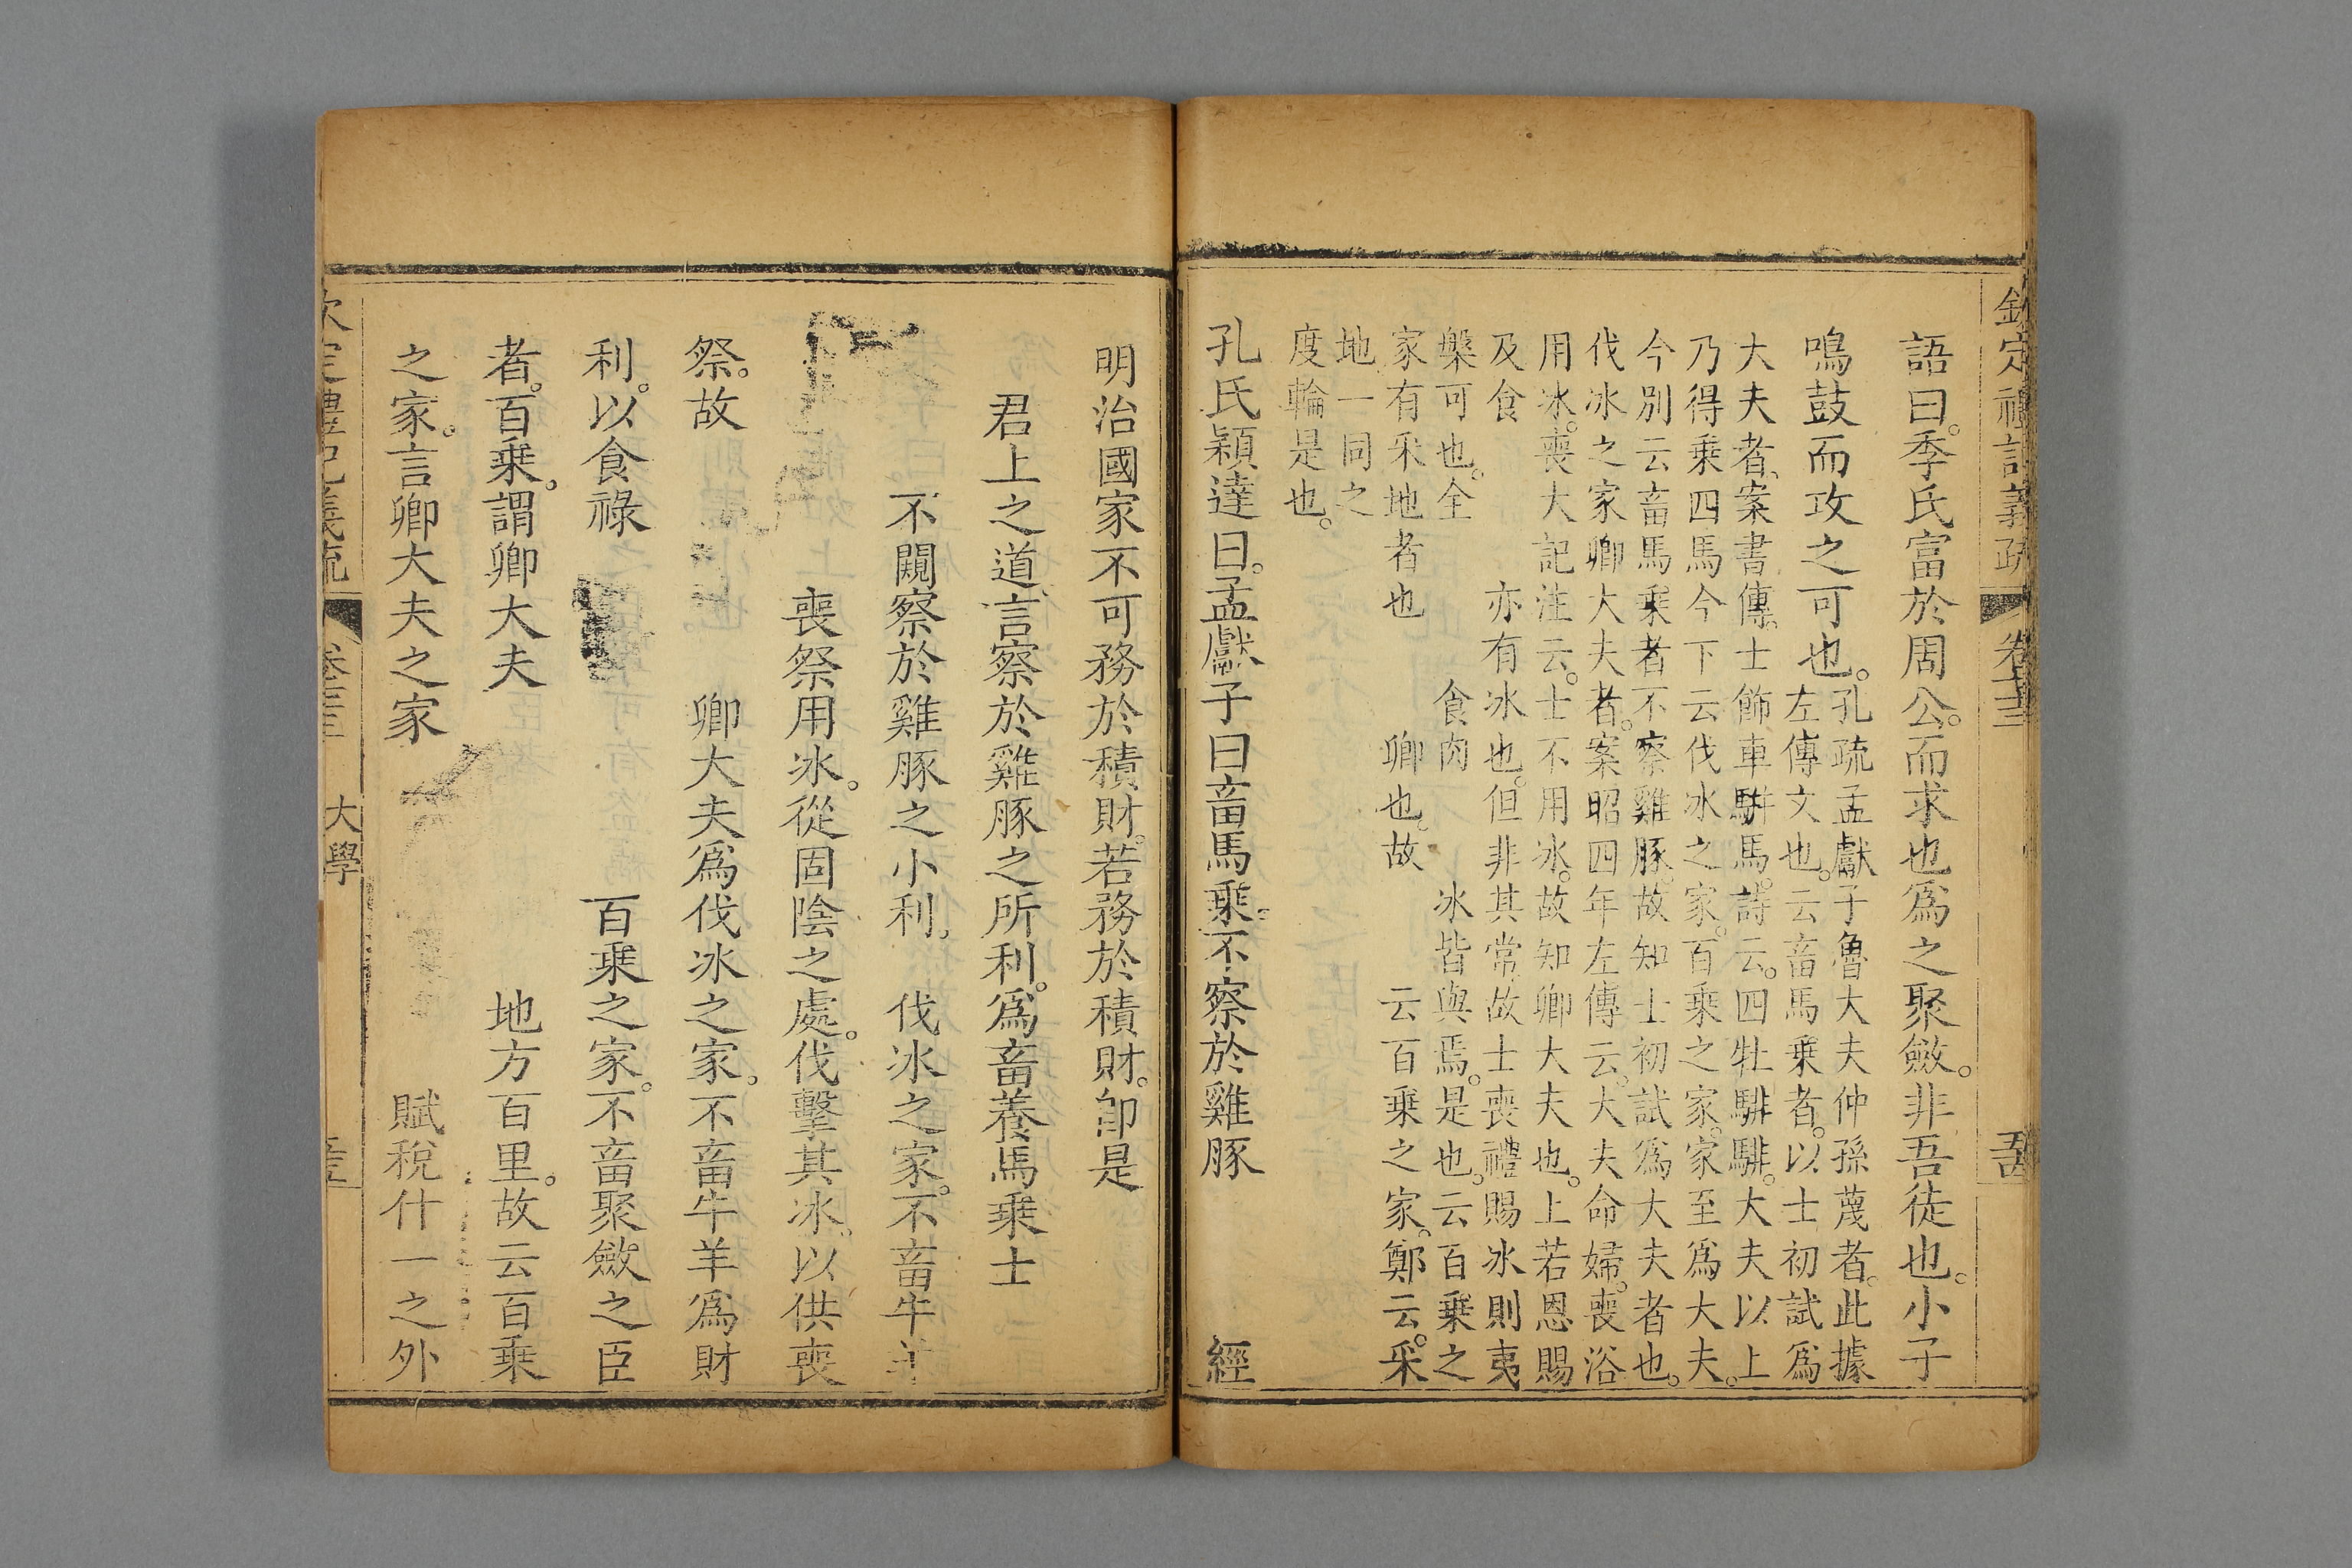 欽定禮記義疏 卷七十三
語曰季氏富於周公而求也爲之聚斂非吾徒也小子
鳴鼓而攻之可也孔疏孟獻子魯大夫仲孫蔑者此據
左傳文也云畜馬乗者以士初試爲
大夫者案書傳士飾車駢馬詩云四牡騑騑大夫以上
乃得乗四馬今下云伐冰之家百乗之家家至爲大夫
今别云畜馬乗者不察雞豚故知士初試爲大夫者也
伐冰之家卿大夫者案昭四年左傳云大夫命婦喪浴
用冰喪大記注云士不用冰故知卿大夫也上若恩賜
及食 亦有冰也但非其常故士喪禮賜冰則夷
槃可也全 食肉 冰皆與焉是也云百乗之
家有采地者也 卿也故 云百乗之家鄭云采
地一同之
度輪是也
孔氏穎達曰孟獻子曰畜馬乗不察於雞豚 經
明治國家不可務於積財若務於積財卽是
君上之道言察於雞豚之所利爲畜養馬乗士
不闚察於雞豚之小利 伐冰之家不畜牛羊
喪祭用冰從固陰之處伐擊其冰以供喪
祭故 卿大夫爲伐冰之家不畜牛羊爲財
利以食祿 百乗之家不畜聚斂之臣
者百乗謂卿大夫 地方百里故云百乗
之家言卿大夫之家 賦稅什一之外
大學